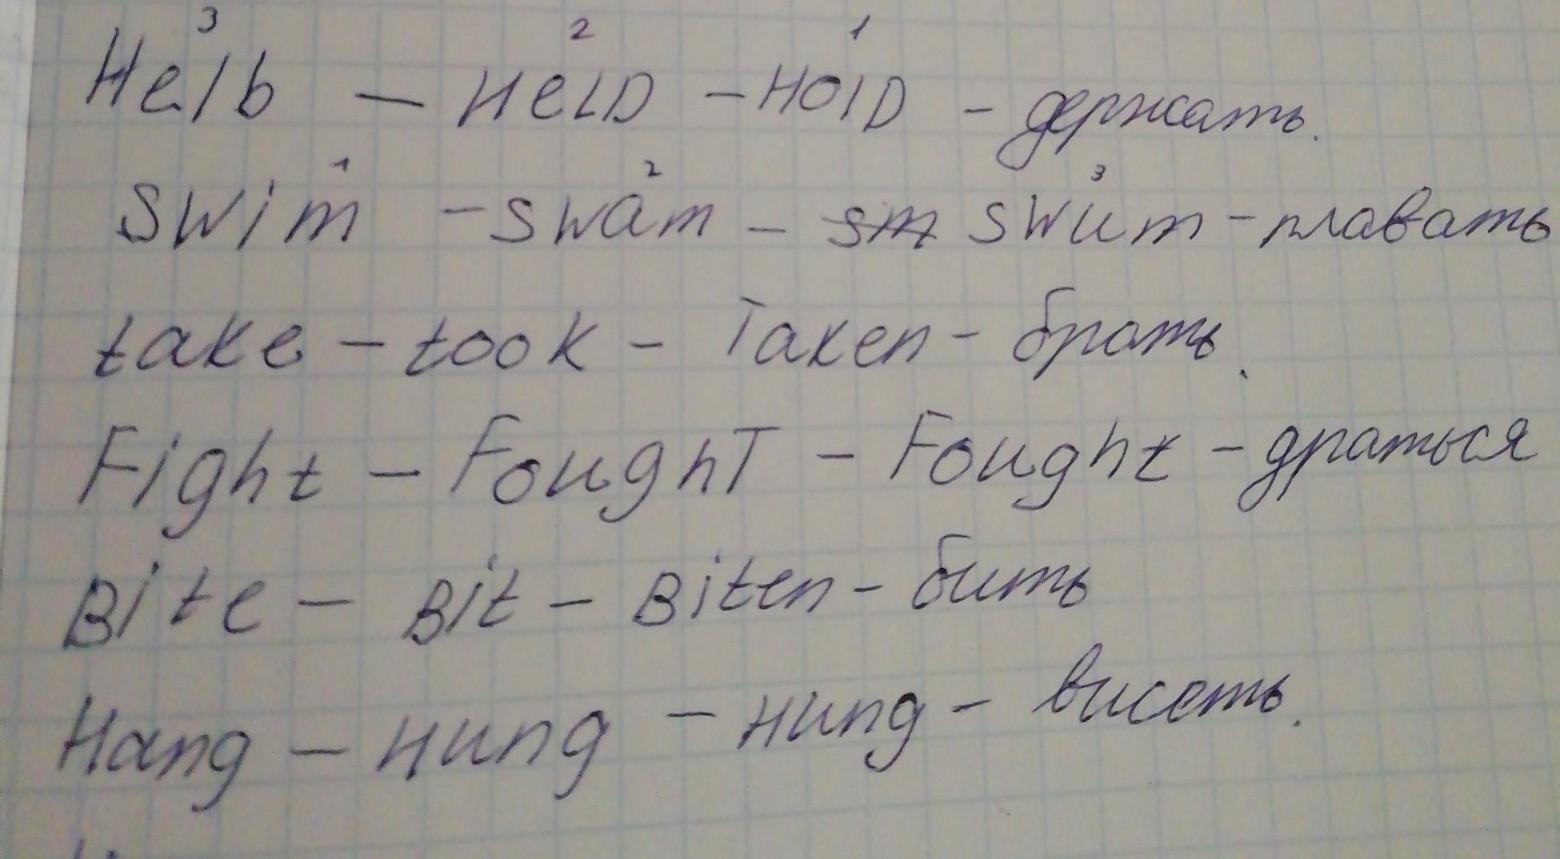 3 2 1
Helb - HelD - HolD - держать.
1 2 3
swim - swam - sm swum - плавать
take - took - Taken - брать.
Fight - FoughT - Fought - драться
Bite - Bit - Biten - бить
Hang - Hung - Hung - висеть.